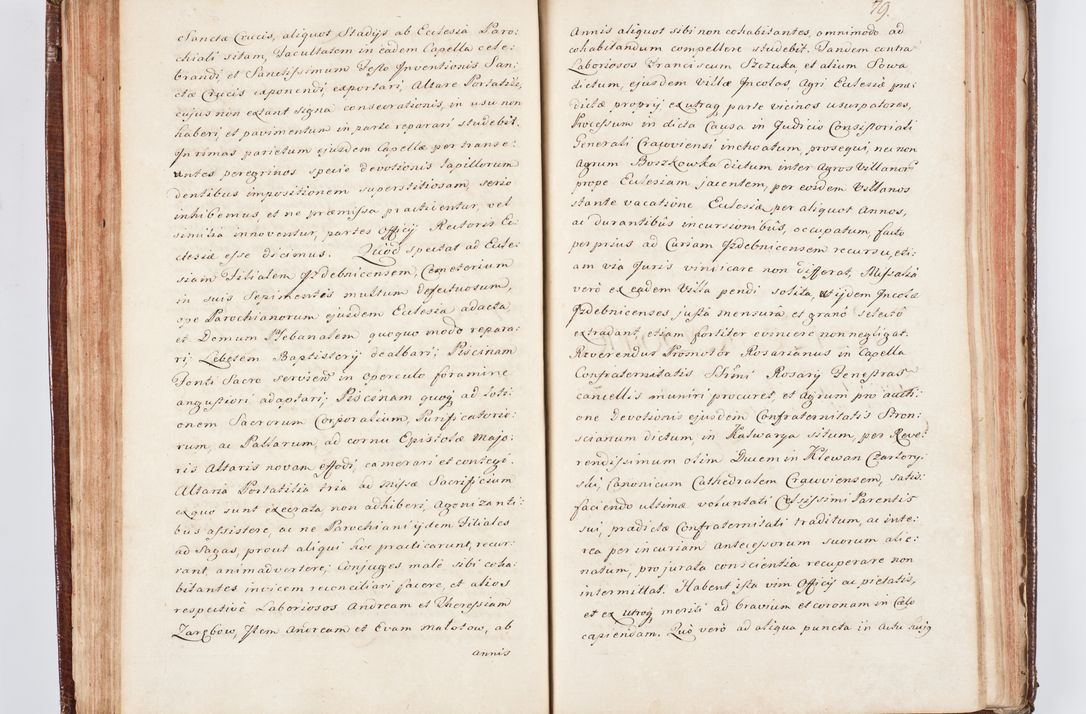 Sanctæ Crucis, aliquot Stadijs ab Ecclesia Paro:
chiali sitam, Facultatem in eadem Capella cele:
brandi, et Sanctissimum Festo Inventionis San:
ctæ Crucis exponendi exportari, Altare Portatile,
cujus non extant signa consecrationis, in usu non
haberi, et pavimentum in parte reparari studebit.
In rimas parietum ejusdem Capellæ per transe:
untes peregrinos specie devotionis lapillorum
dentibus impositionem superstitiosam, serio
inhibemus, et ne præmissa practicentur, vel
similia innoventur, partes Officij Rectoris Ec:
clesiæ esse dicimus. Quod spectat ad Eccle:
siam Filialem Izdebnicensem, Cæmeterium
in suis Sepimentis multum defectuosum,
ope Parochianorum ejusdem Ecclesiæ adacta,
et Domum Plebanalem quoquo modo repara:
ri; Lebetem Baptisterij dealbari; Piscinam
Fonti Sacro servien̄ in operculo foramine
angustiori adaptari; Piscinam quoq̢ ad loti:
onem Sacrorum Corporalium, Purificatorio:
rum, ac Pallarum, ad cornu Epistolæ Majo:
ris Altaris novam effodi, camerari et contegi.
Altaria Portatilia tria ad Missæ Sacrificium
ex quo sunt execrata, non adhiberi, Agonizanti:
bus assistere, ac ne Parochiani ijdem Filiales
ad Sagas, prout aliqui hoc practicarunt, recur:
rant, animadvertere; Conjuges male sibi coha:
bitantes invicem reconciliari facere, et alios
respective Laboriosos Andream et Theressiam
Zarębow, Item Andream et Evam Malotow, ab
annis
79.
Annis aliquot sibi non cohabitantes, omnimodo ad
cohabitandum compellere studebit. Tandem contra
Laboriosos Franciscum Szczuka, et alium Sowa
dictum, ejusdem Villæ Incolas, Agri Ecclesiæ præ:
dictæ proprij ex utraq̢ parte vicinos usurpatores,
Processum in dicta Causa in Judicio Consistoriali
Generali Cracoviensi inchoatum, prosequi, nec non
Agrum Boszkowka dictum inter Agros Villanor̄
prope Ecclesiam jacentem, per eosdem Villanos
stante vacatione Ecclesiæ, per aliquot Annos,
ac durantibus incursionibus, occupatum, facto
per prius ad Curiam Izdebnicensem recursu, eti:
am via Juris vindicare non differat, Missalia
verò ex eadem Villa pendi solita, ut ijdem Incolæ
Izdebnicenses justa mensura, et grano selecto
extradant, etiam fortiter evincere non negligat.
Reverendus Promotor Rosarianus in Capella
Confraternitatis SSmi Rosarij Fenestras
cancellis muniri procuret, et Agrum pro aucti:
one Devotionis ejusdem Confraternitatis Stron:
scianum dictum, in Kalwarya situm, per Reve:
rendissimum olim Ducem in Klewan Czartory:
ski Canonicum Cathedralem Cracoviensem, satis:
faciendo ultimæ voluntati Celsissimi Parentis
sui, prædictæ Confraternitati traditum, ac inte:
rea per incuriam Antecessorum suorum alie:
natum, pro jurata conscientia recuperare non
intermittat. Habent ista vim Officij ac pietatis,
et ex utroq̢ meriti ad bravium et coronam in Cælo
capiendam. Quò verò ad aliqua puncta in Actu hujq̢